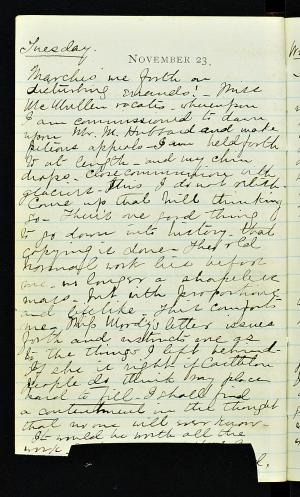 Tuesday.
NOVEMBER 23.
Marches me forth on
disturbing errands! - Miss
McMullen vacates - whereupon
I am commissioned to dawn
upon Mr. M. Hubbard and make
piteous appeals - I am held forth
to at length - and my chin
drops. Close communion with
glaciers. This I do not relish -
Come up that hill thinking
so - There's one good thing
to go down into history - that
copying is done - The old
normal work lies before
me - no longer a shapeless
mass - but with proportions
and lifelike. That comforts
me. Miss Moody's letter issues
forth and instructs me as
to the things I left behind -
If she is right, if Carleton
people do think my place
hard to fill - I shall find
a contentment in the thought
that no one will ever know -
It would be worth all the
work.